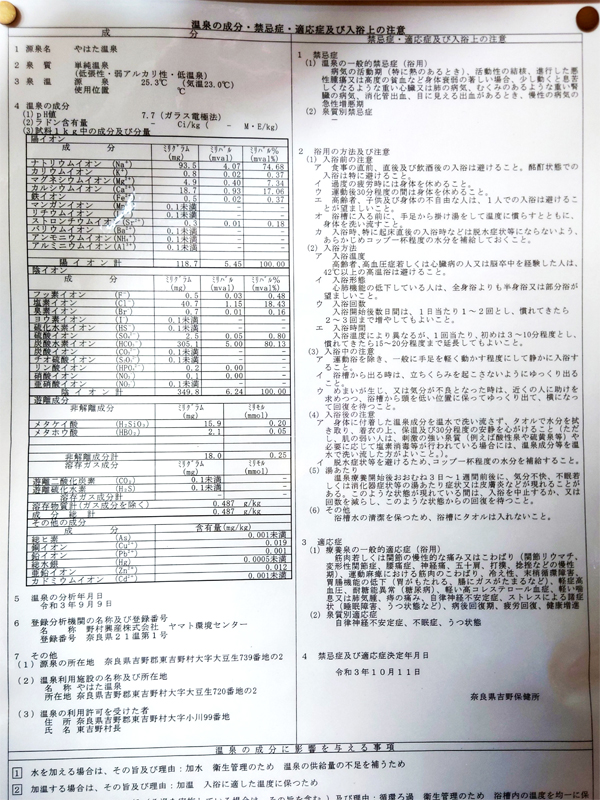 温泉の成分・禁忌症・適応症及び入浴上の注意
成　　　　　分
1 源泉名　　やはた温泉
2 泉 質　　単純温泉
(低張性・弱アルカリ性・低温泉)
3 泉 温　　源　　泉　　25.3℃　(気温23.0℃)
使用位置　　　　℃
4 温泉の成分
(1) pH値　　7.7 (ガラス電極法)
(2) ラドン含有量　　－　Ci/kg (　－　M・E/kg)
(3) 試料1kg中の成分及び分量
陽イオン
成　　分　　ミリグラム(mg)　ミリバル(mval)　ミリバル%(mval%)
ナトリウムイオン (Na⁺) 93.5 4.07 74.68
カリウムイオン (K⁺) 0.8 0.02 0.37
マグネシウムイオン (Mg²⁺) 4.9 0.40 7.34
カルシウムイオン (Ca²⁺) 18.7 0.93 17.06
鉄イオン (Fe 0.5 0.02 0.37
マンガンイオン 0.1未満 －
リチウムイオン 0.1未満 －
ストロンチウムイオン(Sr²⁺) 0.3 0.01 0.18
バリウムイオン (Ba²⁺) 0.1未満 －
アンモニウムイオン(NH₄⁺) 0.1未満 －
アルミニウムイオン(Al³⁺) 0.1未満 －
陽イオン計 118.7 5.45 100.00
陰イオン
成　　分　　ミリグラム(mg)　ミリバル(mval)　ミリバル%(mval%)
フッ素イオン (F⁻) 0.5 0.03 0.48
塩素イオン (Cl⁻) 40.7 1.15 18.43
臭素イオン (Br⁻) 0.7 0.01 0.16
ヨウ素イオン (I⁻) 0.1未満 －
硫化水素イオン (HS⁻) 0.1未満 －
硫酸イオン (SO₄²⁻) 2.5 0.05 0.80
炭酸水素イオン (HCO₃⁻) 305.1 5.00 80.13
炭酸イオン (CO₃²⁻) 0.1未満 －
チオ硫酸イオン (S₂O₃²⁻) 0.1未満 －
リン酸イオン 0.2 0.00 －
硝酸イオン (NO₃⁻) 0.1 0.00 －
亜硝酸イオン (NO₂⁻) 0.1未満 －
陰イオン計 349.8 6.24 100.00
遊離成分
非解離成分　　ミリグラム(mg)　ミリモル(mmol)
メタケイ酸 (H₂SiO₃) 15.9 0.20
メタホウ酸 (HBO₂) 2.1 0.05
非解離成分計 18.0 0.25
溶存ガス成分　　ミリグラム(mg)　ミリモル(mmol)
遊離二酸化炭素 (CO₂) 0.1未満 －
遊離硫化水素 (H₂S) 0.1未満 －
溶存ガス成分計 － －
溶存物質計(ガス成分を除く) 0.487 g/kg
成 分 総 計 0.487 g/kg
その他の成分
成　　分　　含有量(mg/kg)
総ヒ素 (As) 0.001未満
銅イオン (Cu²⁺) 0.019
鉛イオン (Pb²⁺) 0.001
総水銀 (Hg) 0.0005未満
亜鉛イオン (Zn²⁺) 0.012
カドミウムイオン (Cd²⁺) 0.001未満
5 温泉の分析年月日
令和3年9月9日
6 登録分析機関の名称及び登録番号
名　称　野村興産株式会社　ヤマト環境センター
登録番号　奈良県21温第1号
7 その他
(1) 源泉の所在地　奈良県吉野郡東吉野村大字大豆生739番地の2
(2) 温泉利用施設の名称及び所在地
名　称　やはた温泉
所在地　奈良県吉野郡東吉野村大字大豆生720番地の2
(3) 温泉の利用許可を受けた者
住　所　奈良県吉野郡東吉野村大字小川99番地
氏　名　東吉野村長
禁忌症・適応症及び入浴上の注意
1 禁忌症
(1) 温泉の一般的禁忌症 (浴用)
病気の活動期 (特に熱のあるとき)、活動性の結核、進行した悪
性腫瘍又は高度の貧血など身体衰弱の著しい場合、少し動くと息苦
しくなるような重い心臓又は肺の病気、むくみのあるような重い腎
臓の病気、消化管出血、目に見える出血があるとき、慢性の病気の
急性増悪期
(2) 泉質別禁忌症
2 浴用の方法及び注意
(1) 入浴前の注意
ア 食事の直前、直後及び飲酒後の入浴は避けること。酩酊状態での
入浴は特に避けること。
イ 過度の疲労時には身体を休めること。
ウ 運動後30分程度の間は身体を休めること。
エ 高齢者、子供及び身体の不自由な人は、1人での入浴は避けるこ
とが望ましいこと。
オ 浴槽に入る前に、手足から掛け湯をして温度に慣らすとともに、
身体を洗い流すこと。
カ 入浴時、特に起床直後の入浴時などは脱水症状等にならないよう、
あらかじめコップ一杯程度の水分を補給しておくこと。
(2) 入浴方法
ア 入浴温度
高齢者、高血圧症若しくは心臓病の人又は脳卒中を経験した人は、
42℃以上の高温浴は避けること。
イ 入浴形態
心肺機能の低下している人は、全身浴よりも半身浴又は部分浴が
望ましいこと。
ウ 入浴回数
入浴開始後数日間は、1日当たり1～2回とし、慣れてきたら
2～3回まで増やしてもよいこと。
エ 入浴時間
入浴温度により異なるが、1回当たり、初めは3～10分程度とし、
慣れてきたら15～20分程度まで延長してもよいこと。
(3) 入浴中の注意
ア 運動浴を除き、一般に手足を軽く動かす程度にして静かに入浴す
ること。
イ 浴槽から出る時は、立ちくらみを起こさないようにゆっくり出る
こと。
ウ めまいが生じ、又は気分が不良となった時は、近くの人に助けを
求めつつ、浴槽から頭を低い位置に保ってゆっくり出て、横になっ
て回復を待つこと。
(4) 入浴後の注意
ア 身体に付着した温泉成分を温水で洗い流さず、タオルで水分を拭
き取り、着衣の上、保温及び30分程度の安静を心がけること (ただ
し、肌の弱い人は、刺激の強い泉質 (例えば酸性泉や硫黄泉等) や
必要に応じて塩素消毒等が行われている場合には、温泉成分等を温
水で洗い流した方がよいこと。)。
イ 脱水症状等を避けるため、コップ一杯程度の水分を補給すること。
(5) 湯あたり
温泉療養開始後おおむね3日～1週間前後に、気分不快、不眠若
しくは消化器症状等の湯あたり症状又は皮膚炎などが現れることが
ある。このような状態が現れている間は、入浴を中止するか、又は
回数を減らし、このような状態からの回復を待つこと。
(6) その他
浴槽水の清潔を保つため、浴槽にタオルは入れないこと。
3 適応症
(1) 療養泉の一般的適応症 (浴用)
筋肉若しくは関節の慢性的な痛み又はこわばり (関節リウマチ、
変形性関節症、腰痛症、神経痛、五十肩、打撲、捻挫などの慢性
期)、運動麻痺における筋肉のこわばり、冷え性、末梢循環障害、
胃腸機能の低下 (胃がもたれる、腸にガスがたまるなど)、軽症高
血圧、耐糖能異常 (糖尿病)、軽い高コレステロール血症、軽い喘
息又は肺気腫、痔の痛み、自律神経不安定症、ストレスによる諸症
状 (睡眠障害、うつ状態など)、病後回復期、疲労回復、健康増進
(2) 泉質別適応症
自律神経不安定症、不眠症、うつ状態
4 禁忌症及び適応症決定年月日
令和3年10月11日
奈良県吉野保健所
温泉の成分に影響を与える事項
1 水を加える場合は、その旨及び理由：加水　衛生管理のため　温泉の供給量の不足を補うため
2 加温する場合は、その旨及び理由：加温　入浴に適した温度に保つため